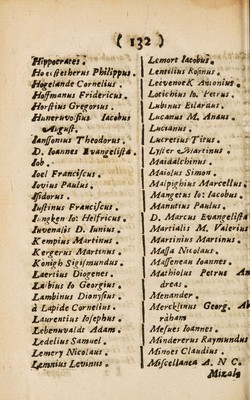 ( 132 )
Hippocrates.
Hoechstetherus Philippus.
Hogelande Cornelius.
Hoffmanus Fridericus.
Horstius Gregorius.
Hunervvosius Iacobus
August.
Ianssonius Theodorus.
D. Ioannes Evangelista
Iob.
Ioel Franciscus.
Iovius Paulus.
Isidorus.
Iustinus Franciscus.
Iungken Io: Helfricus.
Iuvenalis D. Iunius.
Kempius Martinus.
Kergerus Martinus.
König Sigismundus.
Laertius Diogenes.
Labius Io Georgius.
Lambinus Dionysius.
à Lapide Cornelius.
Laurentius Iosephus.
Lebenuvaldt Adam.
Ledelius Samuel.
Lemery Nicolaus.
Lemnius Levinus.
Lemort Iacobus.
Lentilius Rosinus.
Leevvenoek Antonius.
Lotichius Io. Petrus.
Lubinus Eilardus.
Lucanus M. Anæus.
Lucianus.
Lucretius Titus.
Lyser Christianus.
Maidalchinus.
Maiolus Simon.
Malpighius Marcellus.
Mangetus Io: Iacobus.
Manutius Paulus.
D. Marcus Evangelista
Martialis M. Valerius
Martinius Martinus.
Massa Nicolaus.
Massenæus Ioannes.
Mathiolus Petrus An
dreas.
Menander.
Mercklinus Georg. Ab
raham
Mesues Ioannes.
Mindererus Raymundus
Minoes Claudius.
Miscellanea A. N C.
Mizala